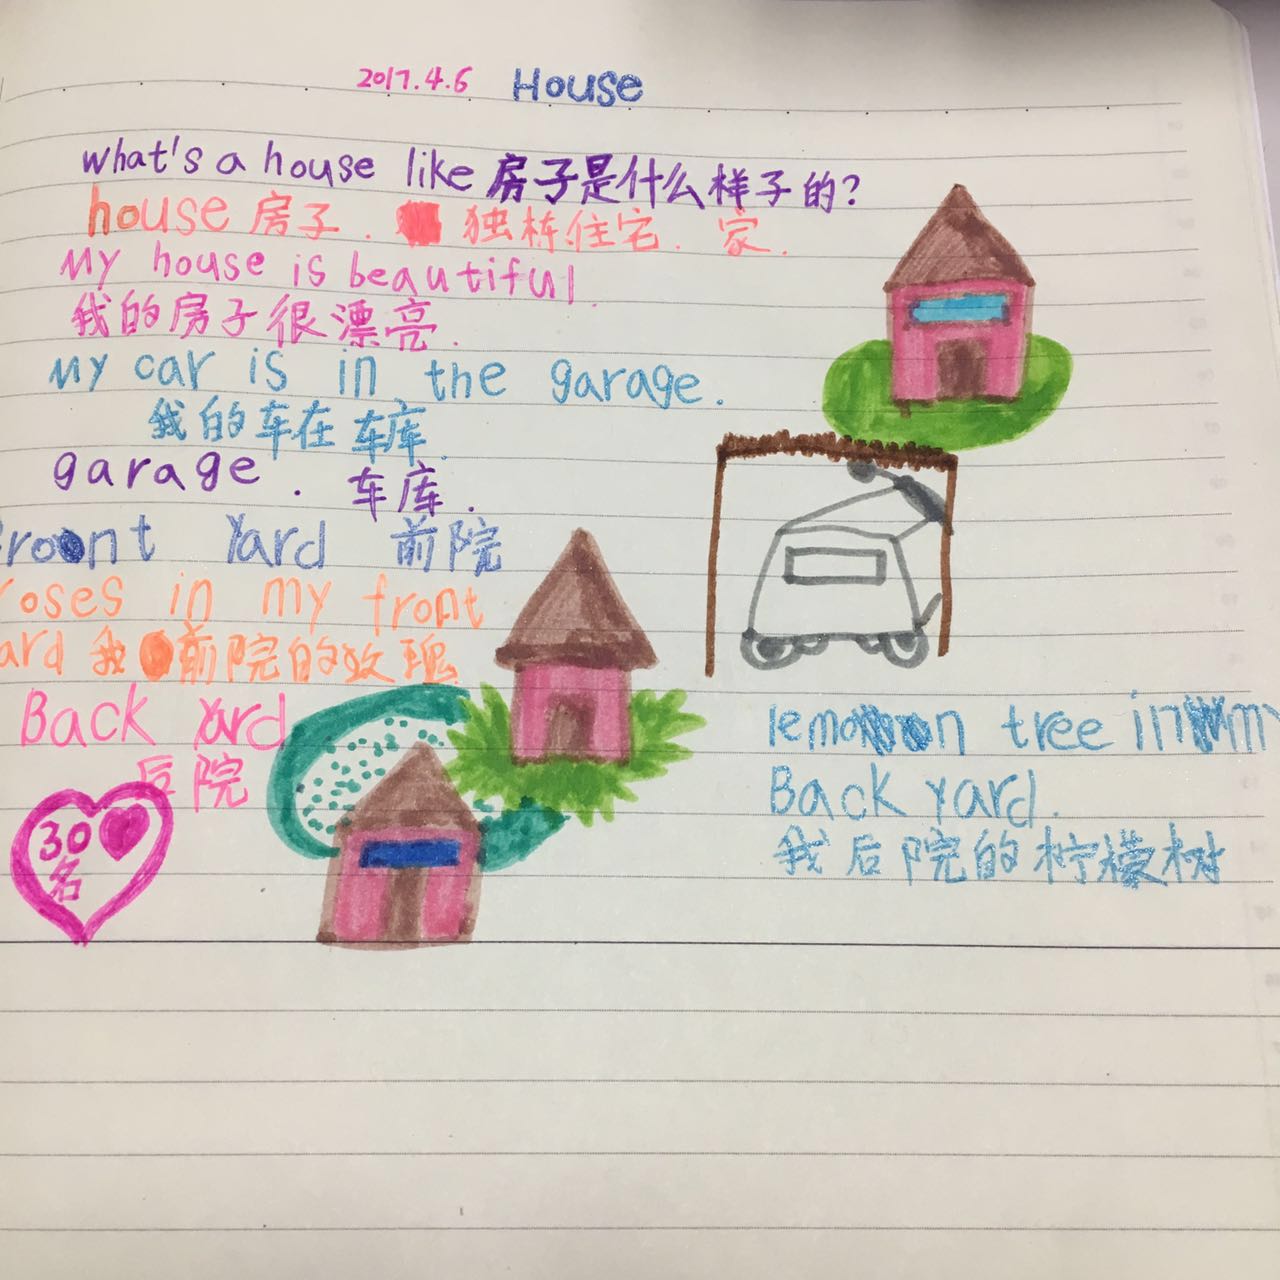 2017.4.6 House
what's a house like 房子是什么样子的?
house 房子. 独栋住宅. 家.
My house is beautiful.
我的房子很漂亮.
My car is in the garage.
我的车在车库.
garage. 车库.
ront Yard 前院
roses in my front
ard 我前院的玫瑰
Back Yard
后院
30
名
lemon tree in my
Back Yard.
我后院的柠檬树